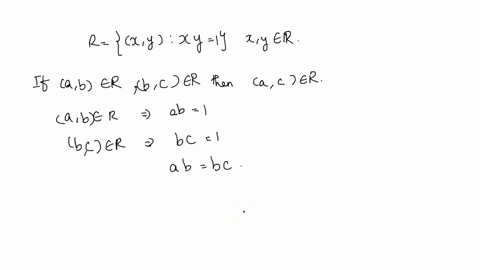 R = {(x,y) : xy = 1} x,y ∈ ℝ.
If (a,b) ∈ R, (b,c) ∈ R then (a,c) ∈ R.
(a,b) ∈ R ⇒ ab = 1
(b,c) ∈ R ⇒ bc = 1
ab = bc.